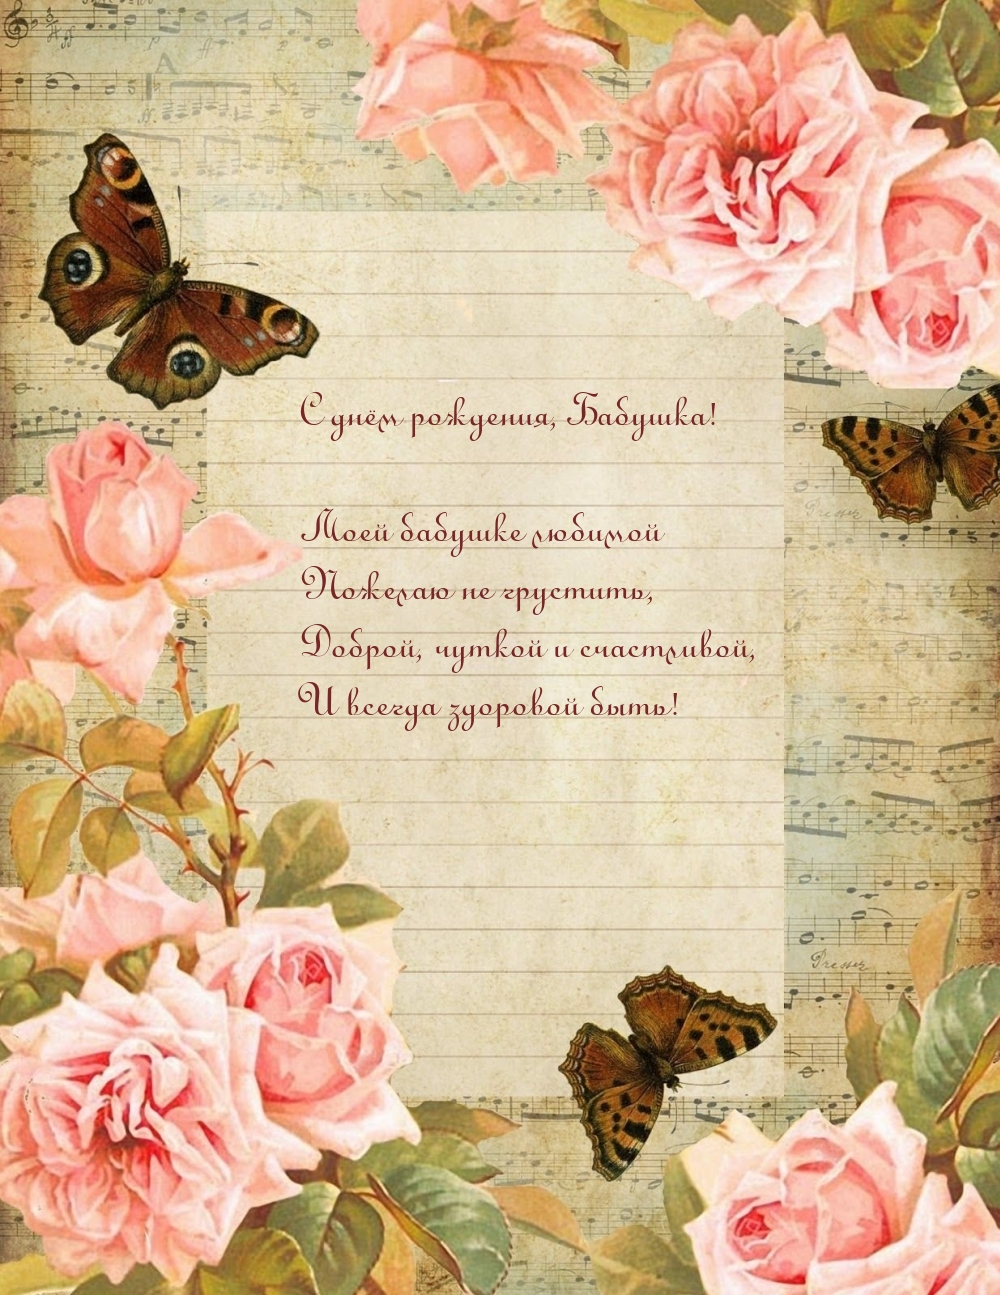 С днём рождения, Бабушка!
Моей бабушке любимой
Пожелаю не грустить,
Доброй, чуткой и счастливой,
И всегда здоровой быть!